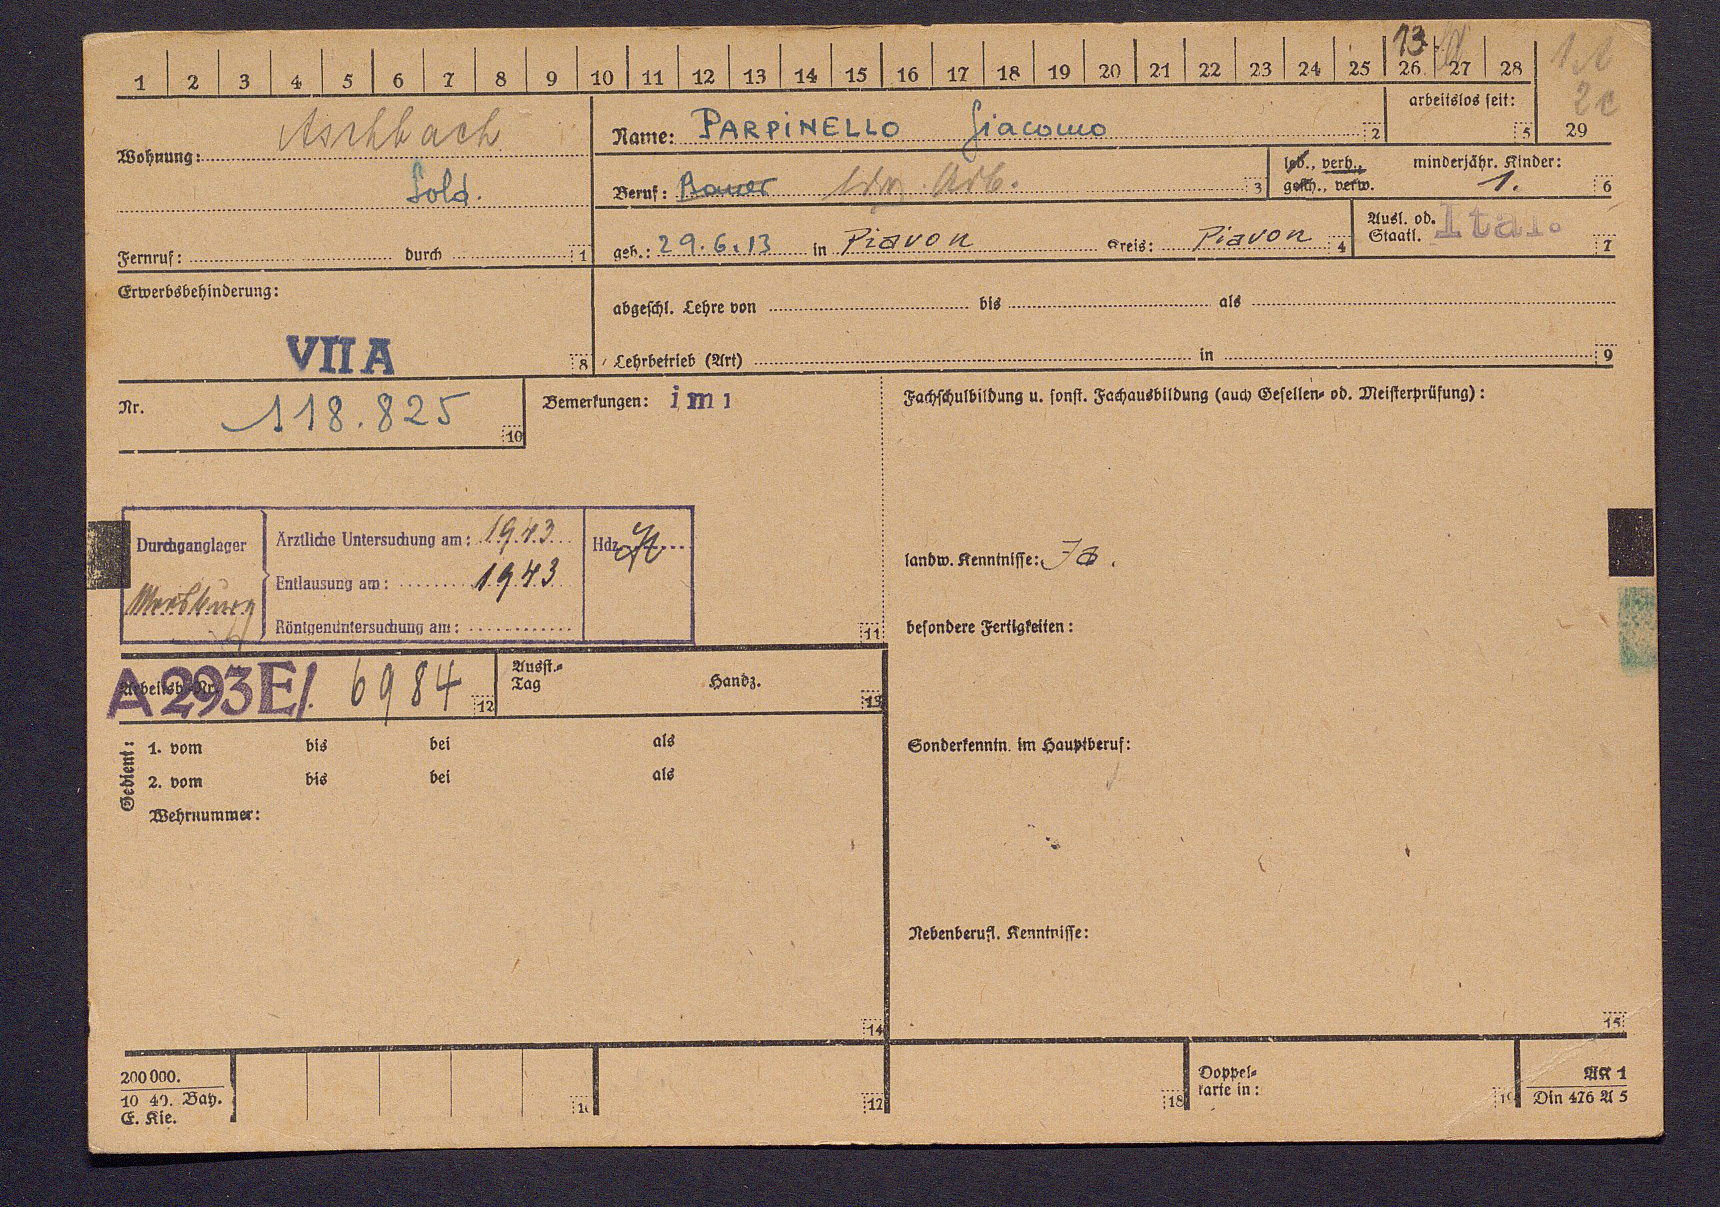 1 2 3 4 5 6 7 8 9 10 11 12 13 14 15 16 17 18 19 20 21 22 23 24 25 26 27 28
13
29
Wohnung: Aschbach
Sold.
Fernruf: durch 1
Name: PARPINELLO Giacomo 2
arbeitslos seit: 5
Beruf: Bauer ldw. Arb. 3
led., verh., gesch., verw.
minderjähr. Kinder: 1. 6
geb.: 29.6.13 in Piavon Kreis: Piavon 4
Ausl. od. Staatl. Ital. 7
Erwerbsbehinderung:
VII A 8
abgeschl. Lehre von bis als
Lehrbetrieb (Art) in 9
Nr. 118.825 10
Bemerkungen: imi
Fachschulbildung u. sonst. Fachausbildung (auch Gesellen- od. Meisterprüfung):
Durchganglager
Ärztliche Untersuchung am: 1943
Entlausung am: 1943
Röntgenuntersuchung am:
Hdz.
11
landw. Kenntnisse: Ja.
besondere Fertigkeiten:
Arbeitsb.-Nr.
A 293E/. 6984 12
Ausst.-Tag Handz. 13
Gedient:
1. vom bis bei als
2. vom bis bei als
Wehrnummer:
14
Sonderkenntn. im Hauptberuf:
Nebenberufl. Kenntnisse:
15
200 000.
10 40. Bay.
E. Kie.
17
18
Doppel-
karte in:
19
AK 1
Din 476 A 5